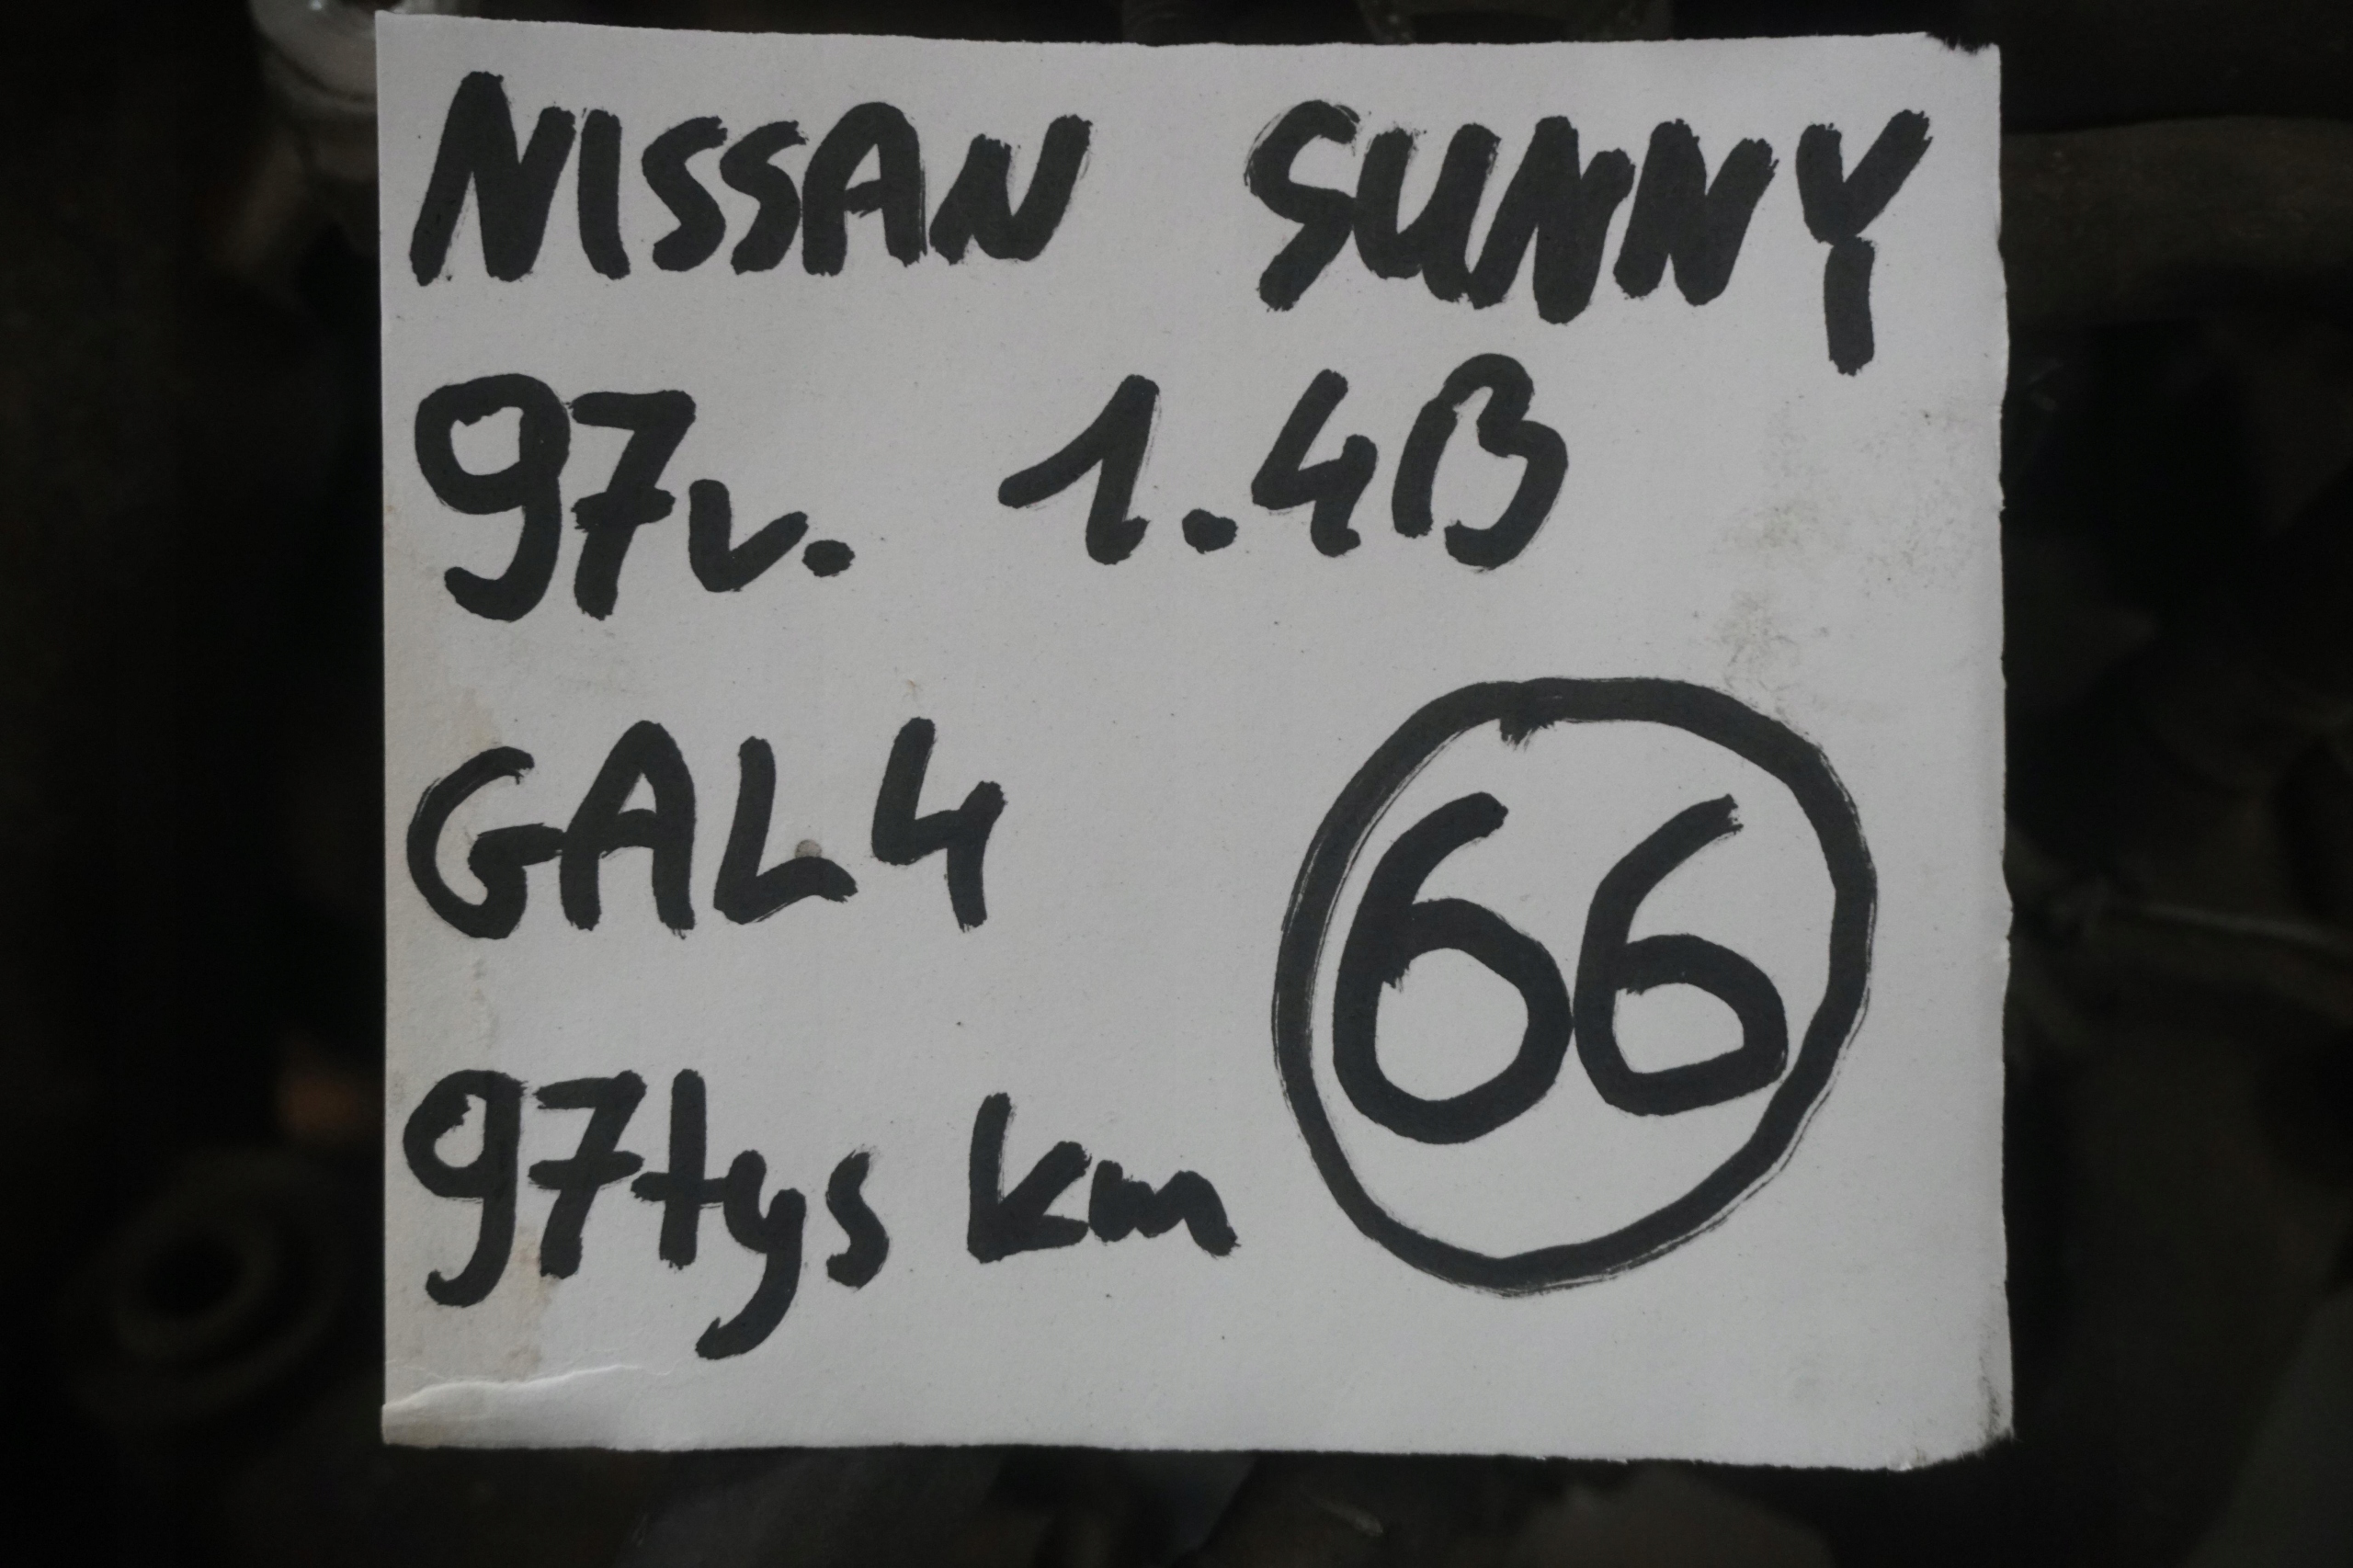 NISSAN SUNNY
97r. 1.4B
GAL4
66
97tys km